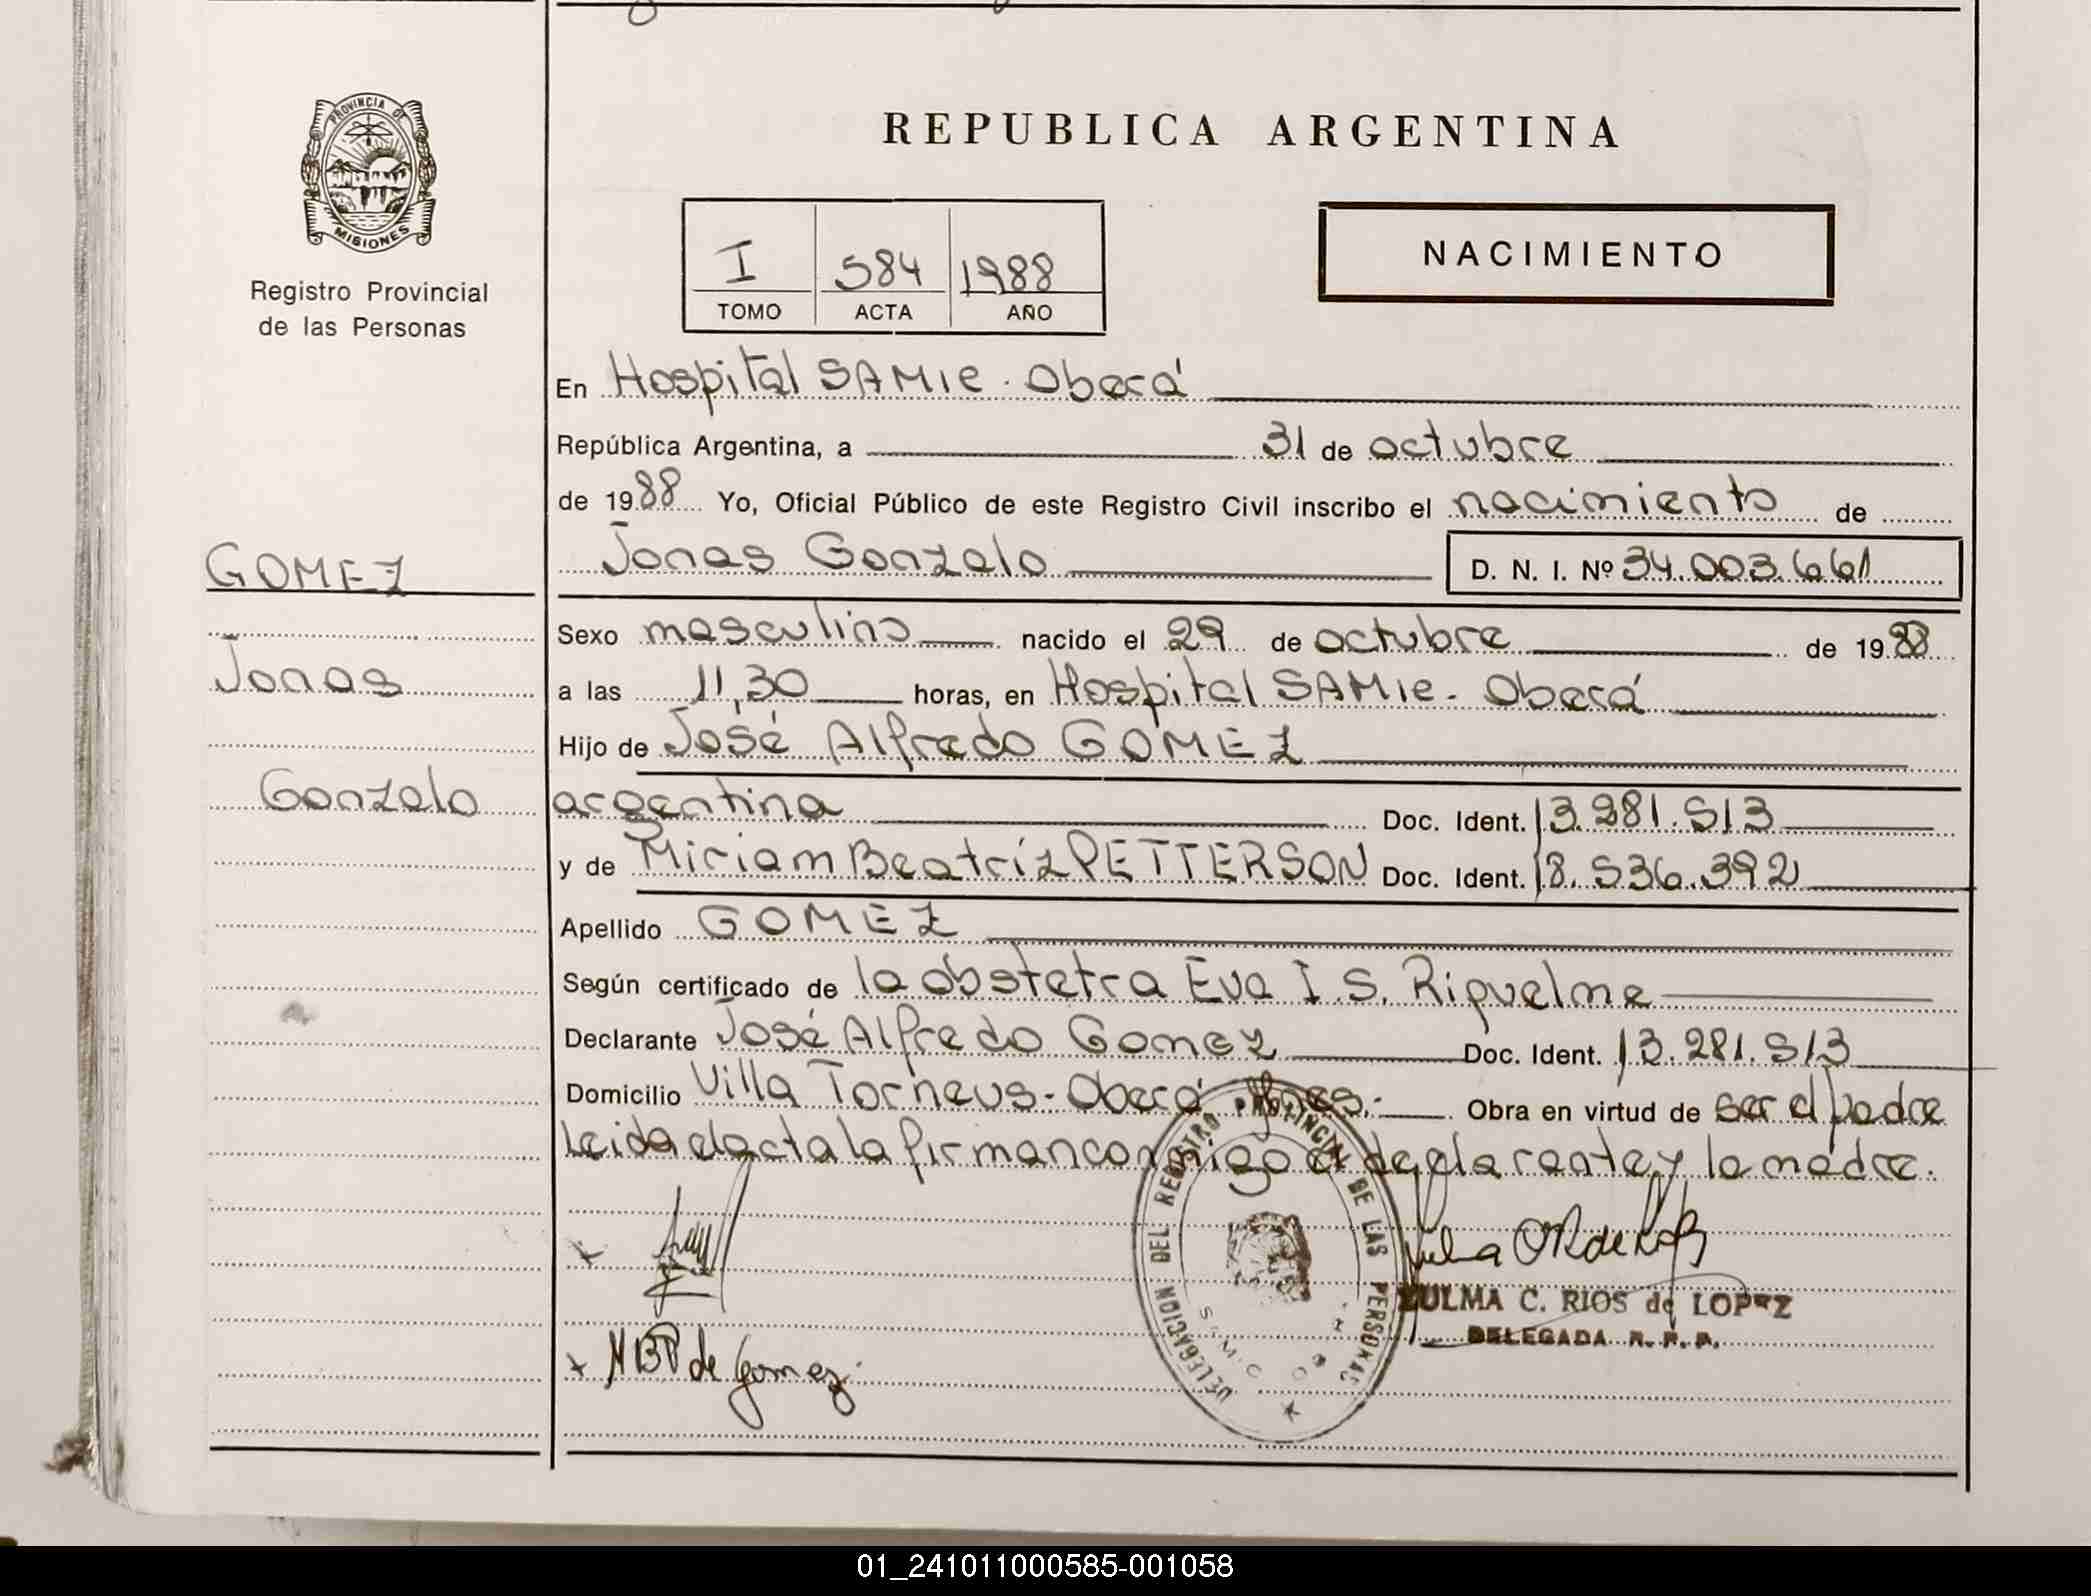 PROVINCIA DE
MISIONES
Registro Provincial
de las Personas
GOMEZ
Jonas
Gonzalo
REPUBLICA ARGENTINA
I 584 1988
TOMO ACTA AÑO
NACIMIENTO
En Hospital SAMIC - Oberá
República Argentina, a 31 de octubre
de 1988 Yo, Oficial Público de este Registro Civil inscribo el nacimiento de
Jonas Gonzalo D. N. I. Nº 34.003.661
Sexo masculino nacido el 29 de octubre de 1988
a las 11,30 horas, en Hospital SAMIC - Oberá
Hijo de José Alfredo GOMEZ
argentina Doc. Ident. 13.281.513
y de Miriam Beatríz PETTERSON Doc. Ident. 18.536.392
Apellido GOMEZ
Según certificado de la obstetra Eva I. S. Riquelme
Declarante José Alfredo Gomez Doc. Ident. 13.281.513
Domicilio Villa Torneus - Oberá Mnes.- Obra en virtud de ser el padre
Leida el acta la firman conmigo el declarante y la madre.
DELEGACION DEL REGISTRO PROVINCIAL DE LAS PERSONAS
ZULMA C. RIOS de LOPEZ
DELEGADA R. P. P.
x MBP de Gomez
01_241011000585-001058